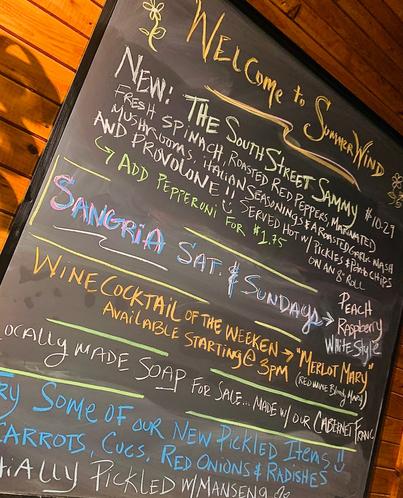 WELCOME to SUMMERWIND
NEW: THE SOUTH STREET SAMMY $10.29
FRESH SPINACH, ROASTED RED PEPPERS, MARINATED
MUSHROOMS, ITALIAN SEASONINGS & A ROASTED GARLIC MASH
AND PROVOLONE!! SERVED HOT W/ PICKLES & POTATO CHIPS
ON AN 8" ROLL
↳ ADD PEPPERONI FOR $1.75
SANGRIA SAT. & SUNDAYS → PEACH
Raspberry
WHITE STYLE
WINE COCKTAIL OF THE WEEKEN → "MERLOT MARY"
AVAILABLE STARTING @ 3PM (RED WINE Bloody MARY)
OCALLY MADE SOAP FOR SALE... MADE W/ OUR CABERNET FRANC
RY SOME OF OUR NEW PICKLED ITEMS!!
CARROTS, CUCS, RED ONIONS & RADISHES
IALLY PICKLED W/ MANSENG